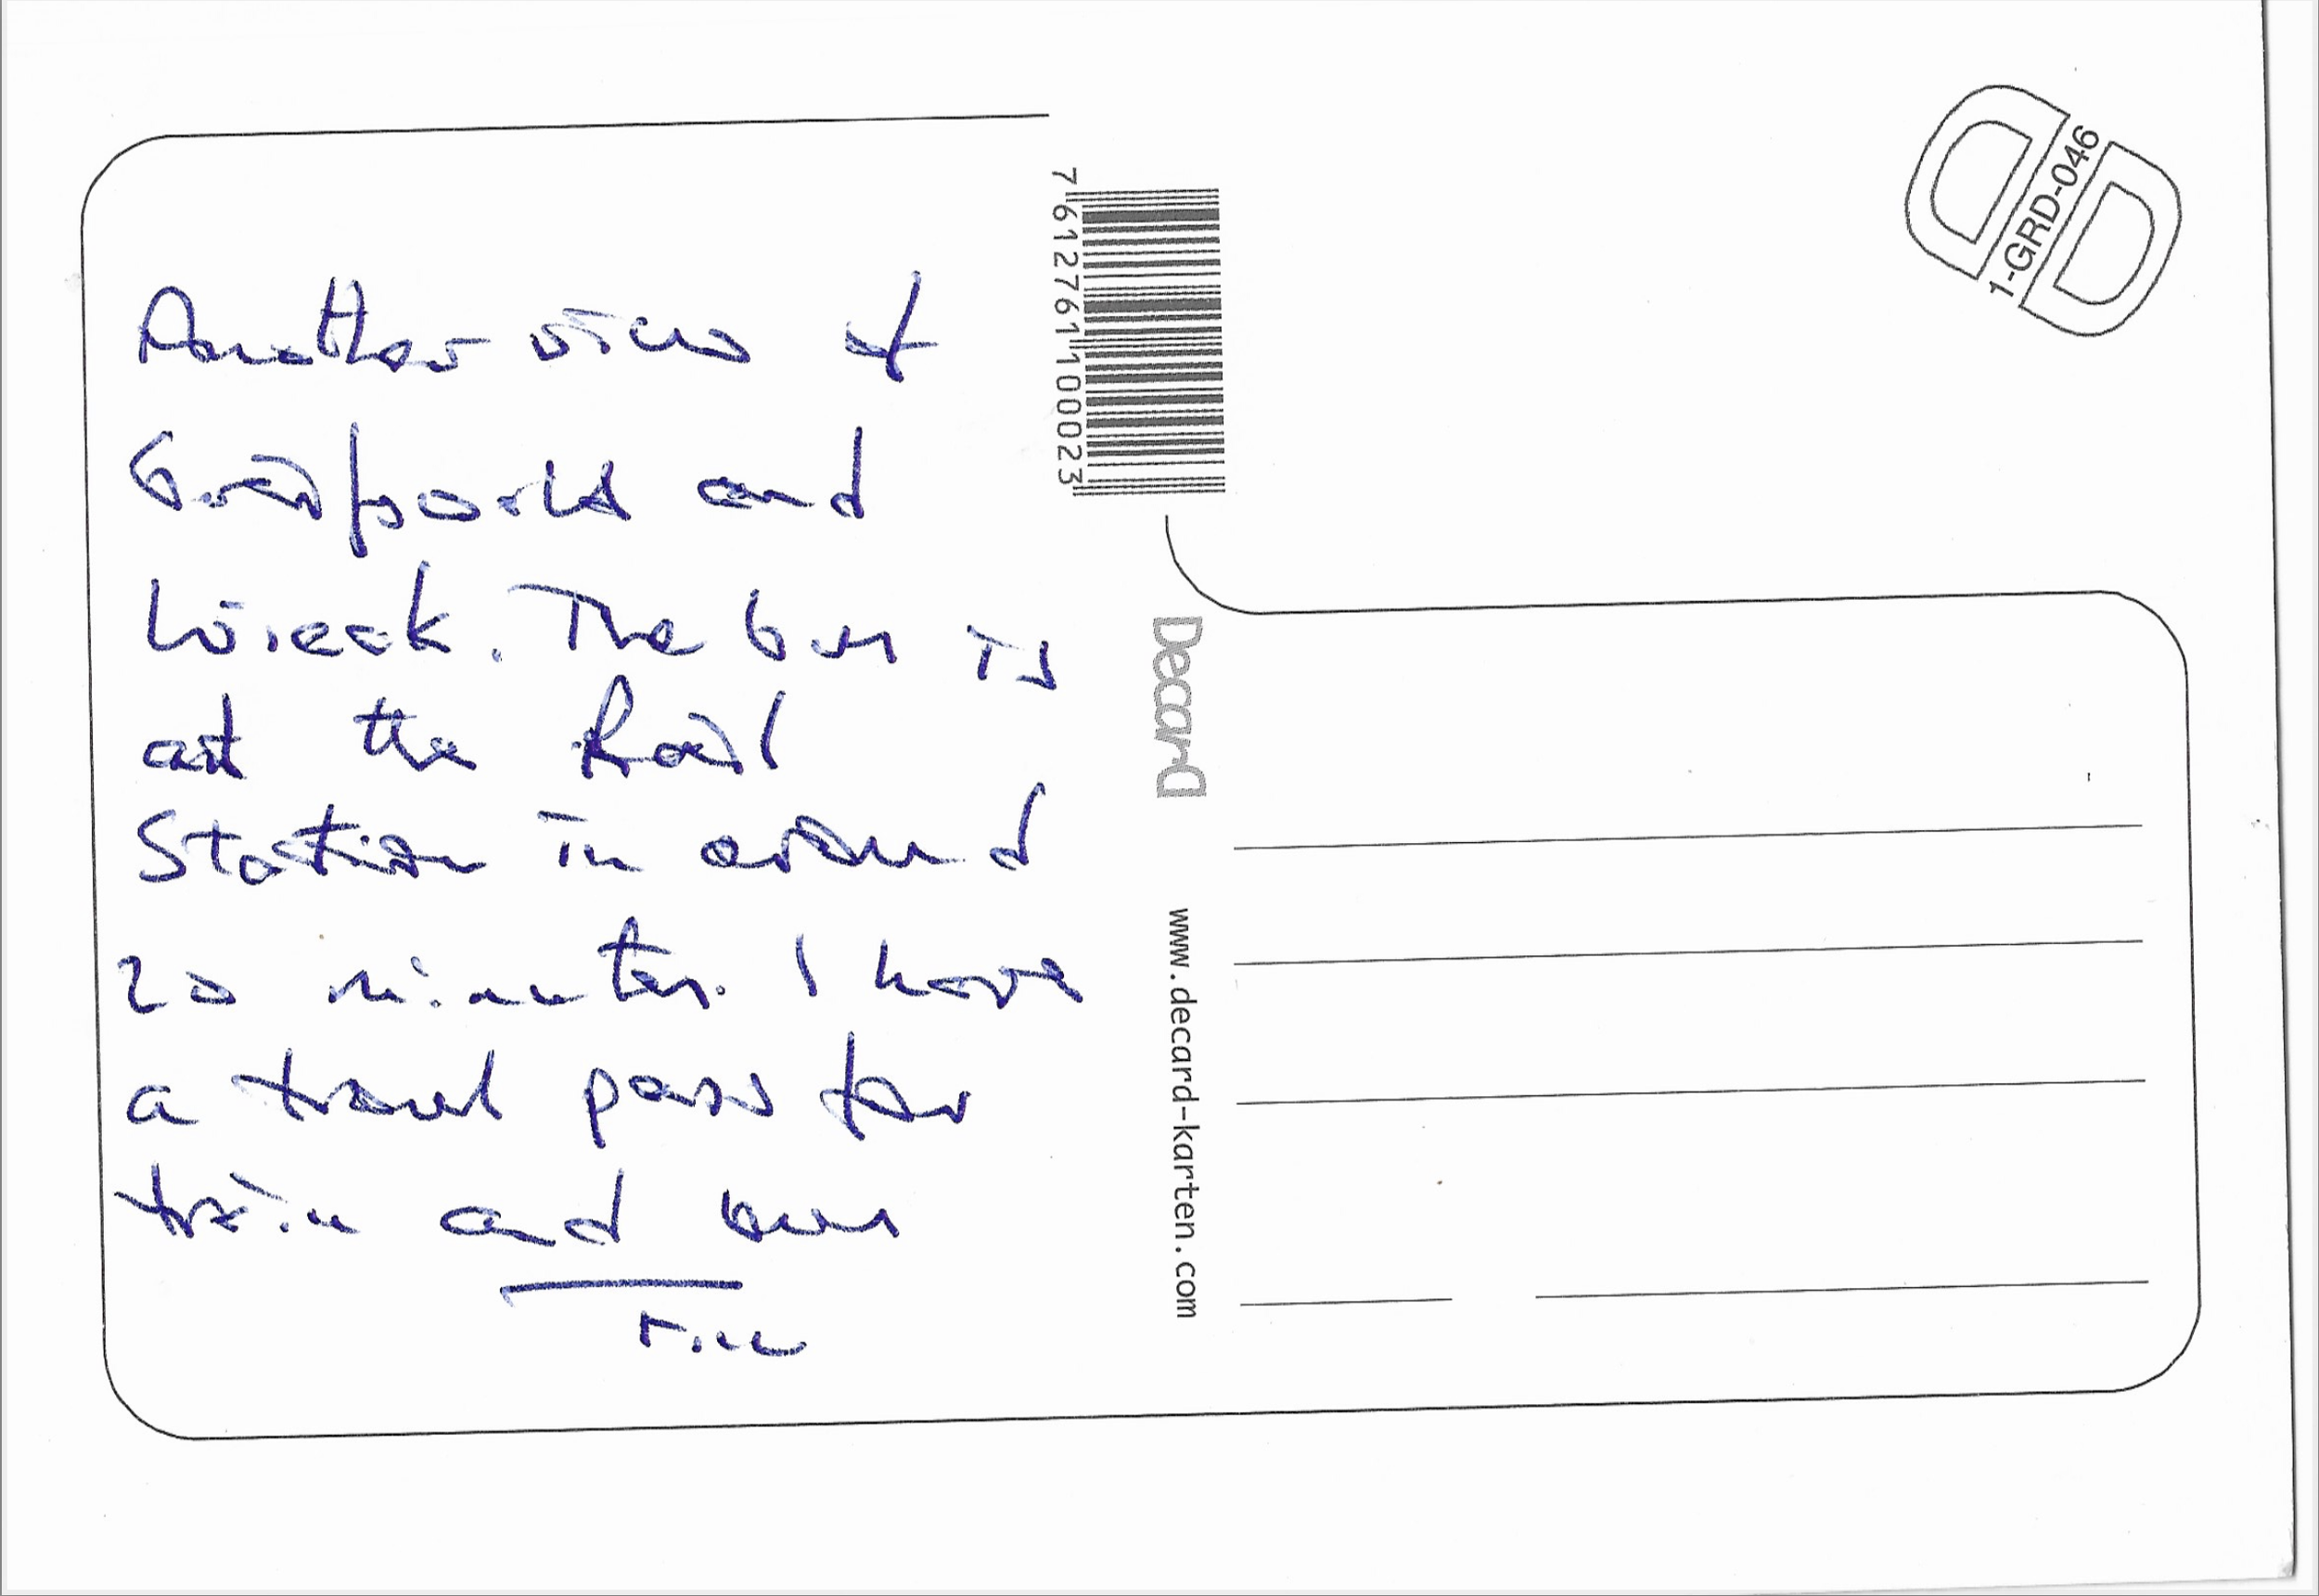 Another view of
Greifswald and
Wieck. The bus is
at the Rail
Station in around
20 minutes. I have
a travel pass for
train and bus
7 612761 100023
Decard
www.decard-karten.com
1-GRD-046